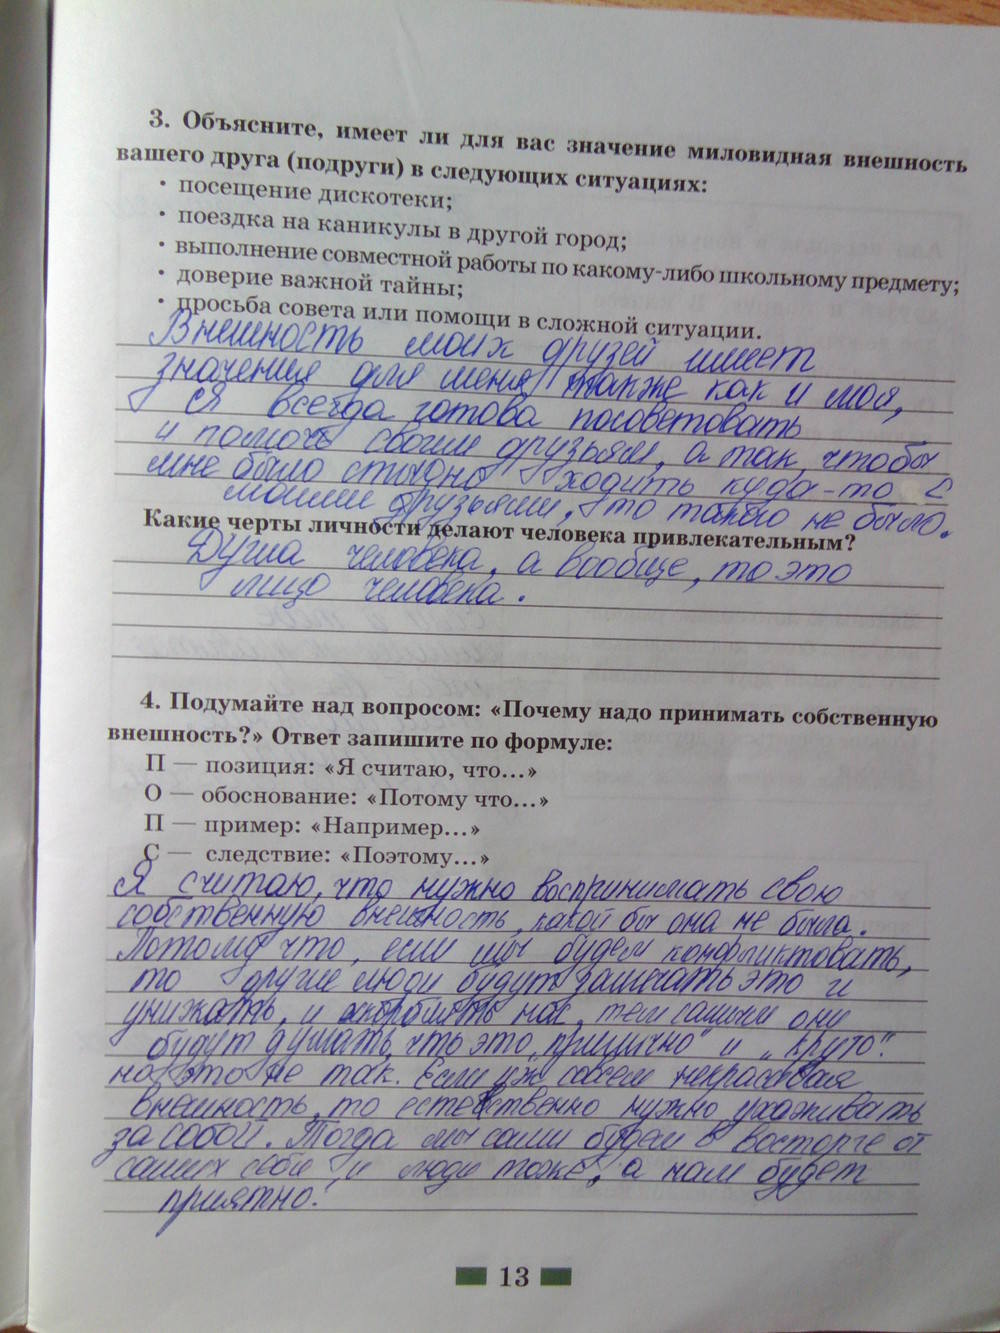 3. Объясните, имеет ли для вас значение миловидная внешность
вашего друга (подруги) в следующих ситуациях:
• посещение дискотеки;
• поездка на каникулы в другой город;
• выполнение совместной работы по какому-либо школьному предмету;
• доверие важной тайны;
• просьба совета или помощи в сложной ситуации.
Внешность моих друзей имеет
значения для меня также как и моя,
Я всегда готова посоветовать
и помочь своим друзьям, а так, чтобы
мне было стыдно ходить куда-то с
моими друзьями, то такого не было.
Какие черты личности делают человека привлекательным?
Душа человека, а вообще, то это
лицо человека.
4. Подумайте над вопросом: «Почему надо принимать собственную
внешность?» Ответ запишите по формуле:
П — позиция: «Я считаю, что...»
О — обоснование: «Потому что...»
П — пример: «Например...»
С — следствие: «Поэтому...»
Я считаю, что нужно воспринимать свою
собственную внешность, какой бы она не была.
Потому что, если мы будем конфликтовать,
то другие люди будут замечать это и
унижать, и оскорблять нас, тем самым они
будут думать, что это „прилично" и „круто".
но это не так. Если уж совсем некрасивая
внешность, то естественно нужно ухаживать
за собой. Тогда мы сами будем в восторге от
самих себя и люди тоже, а нам будет
приятно!
13